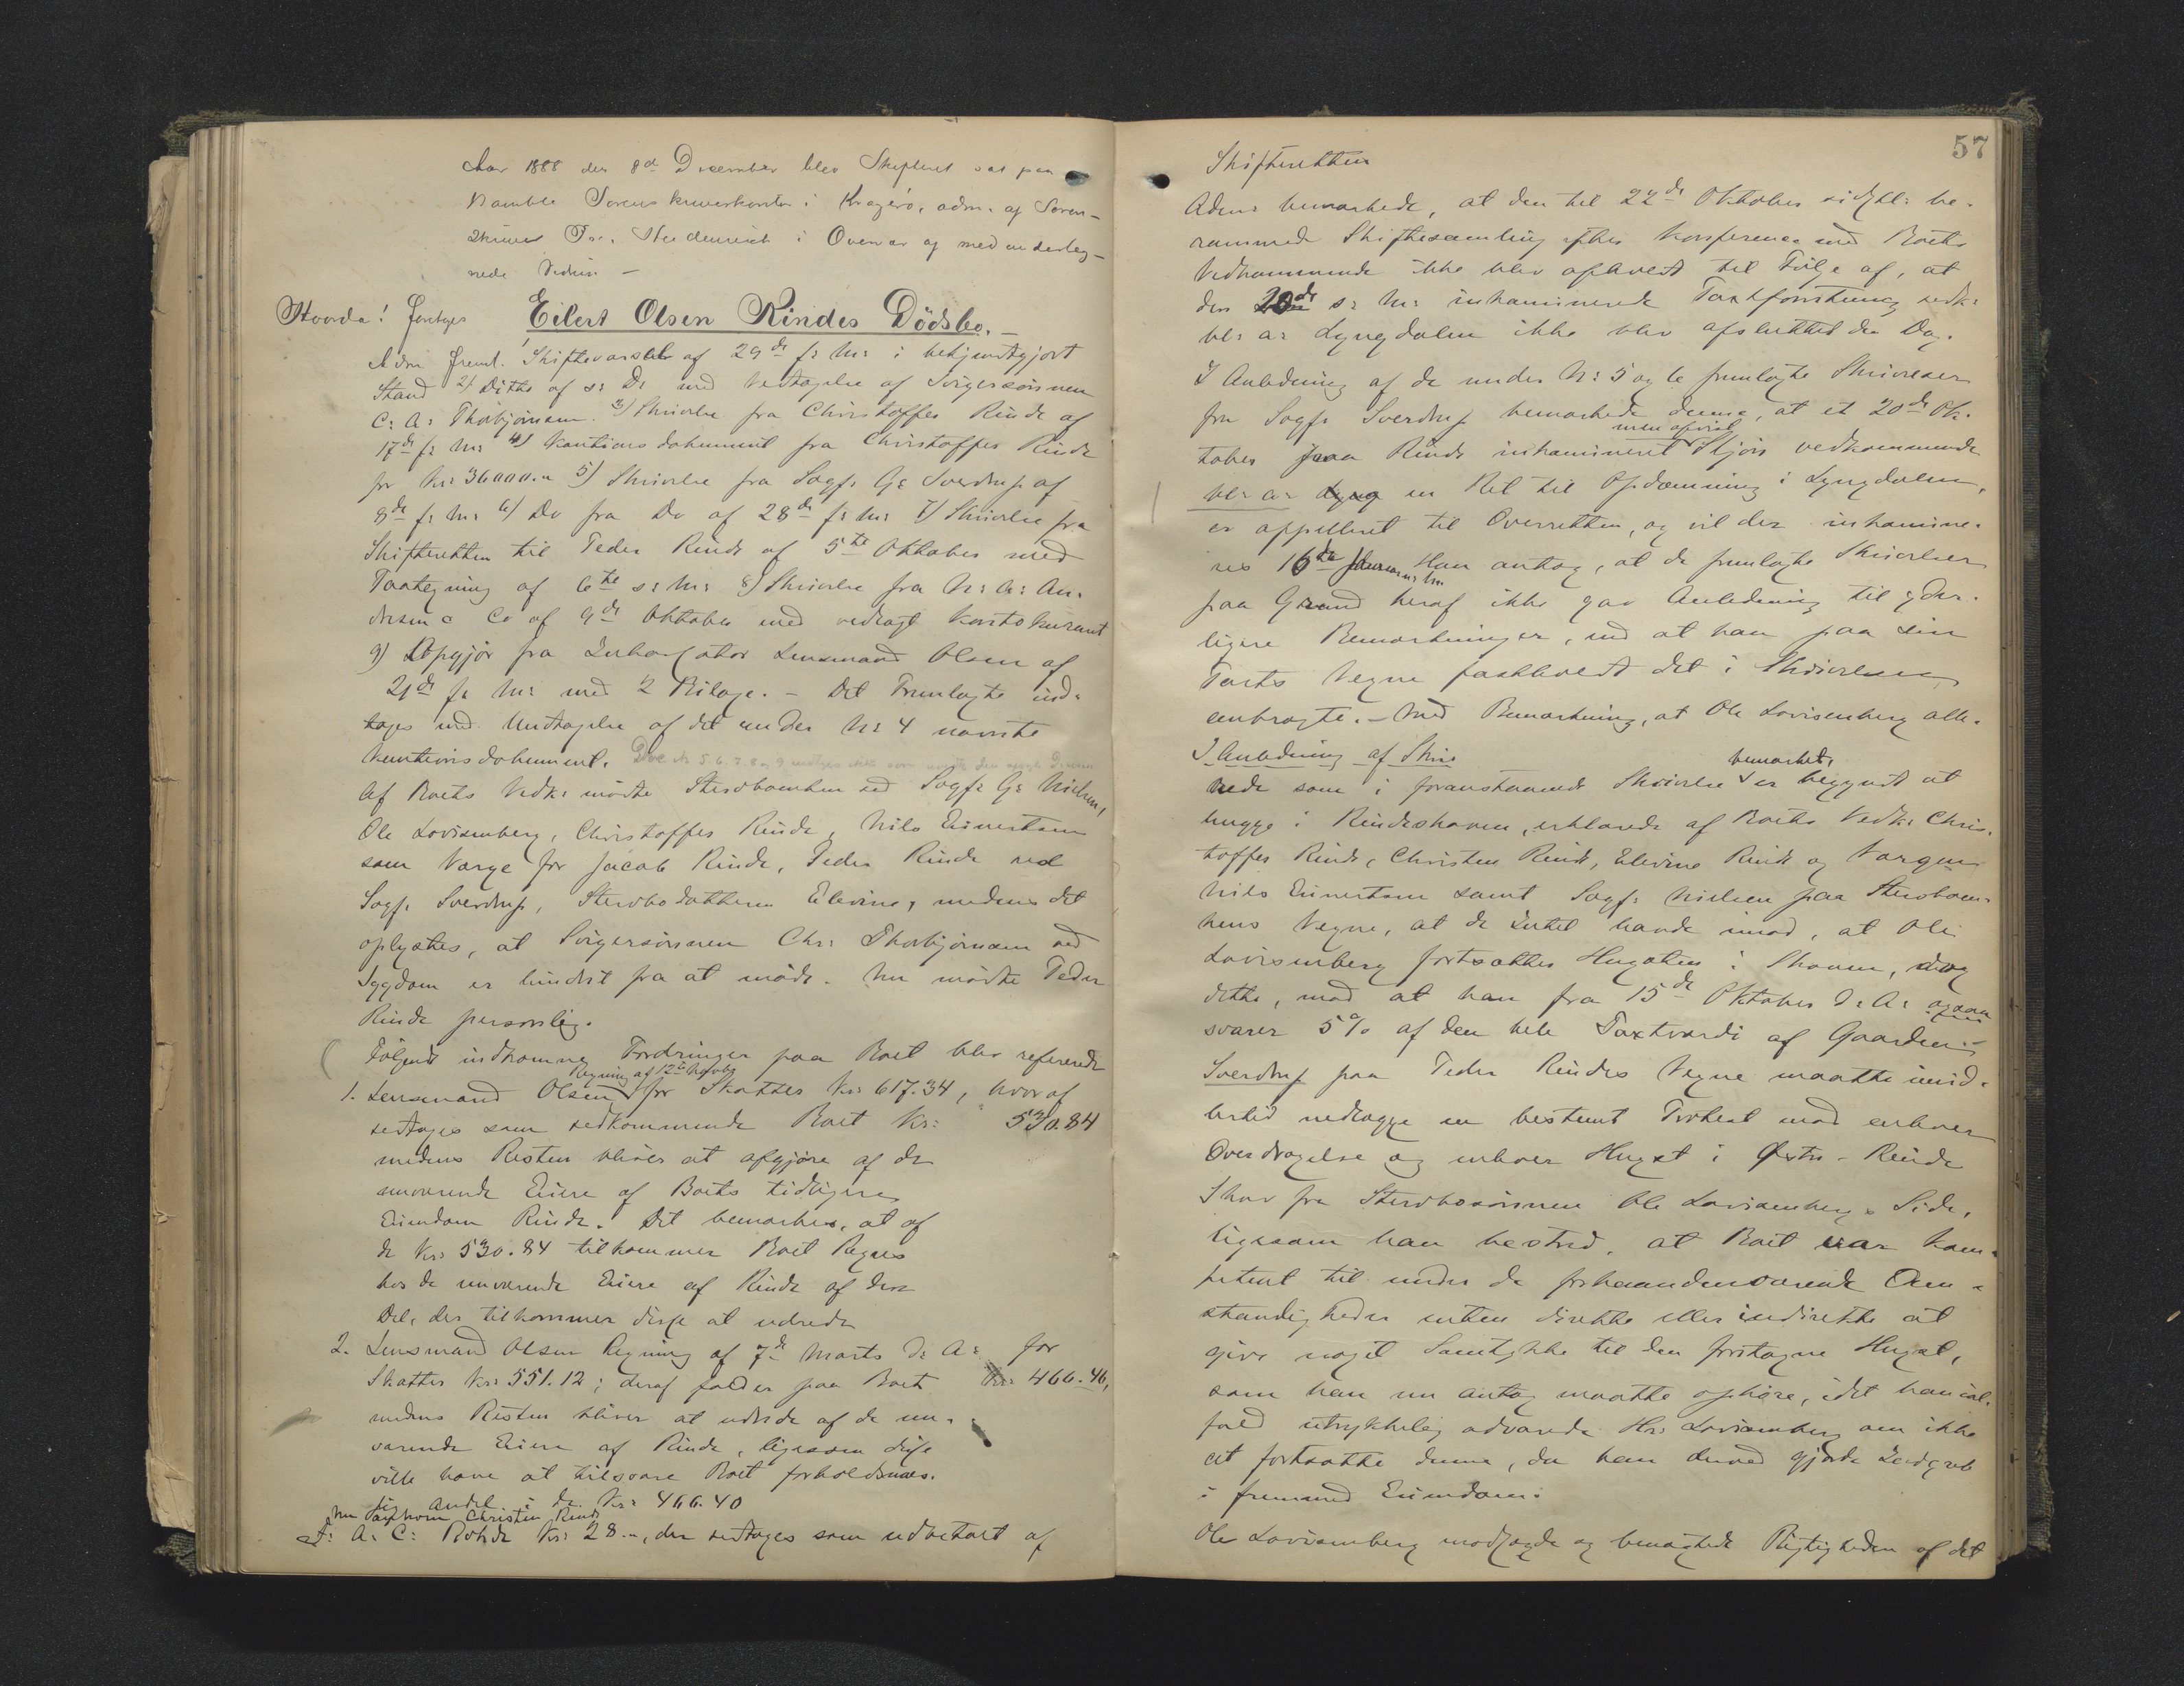 Aar 1888 den 8de December blev Skifteret sat paa
Bamble Sorenskriverkontor i Kragerö, adm. af Soren-
skriver Fr. Heidenreich i Overvær af med underteg-
nede Vidner –
Hvorda! foretoges Eilert Olsen Rindes Dödsbo. –
Adm freml. 1) Skiftevarsel af 29de f: M: i bekjendtgjort
Stand 2) Ditto af s: D: med Vedtagelse af Svigersönnen
C: A: Thorbjörnsen. 3) Skrivelse fra Christoffer Rinde af
17de f: M: 4) Kautionsdokument fra Christoffer Rinde
for Kr: 36000.„ 5) Skrivelse fra Sagf. G: Sverdrup af
8de f: M: 6) Do fra Do af 28de f: M: 7) Skrivelse fra
Skifteretten til Peder Rinde af 5te Oktober med
Paategning af 6te s: M: 8) Skrivelse fra N: A: An-
dresen & Co af 9de Oktober med vedlagt Kontokurant
9) Opgjör fra Inkassator Lensmand Olsen af
21de f: M: med 2 Bilage. – Det Fremlagte ind-
tages med Undtagelse af det under No: 4 nævnte
Kautionsdokument. Doc No 5. 6. 7. 8 og 9
Af Boets Vedk: mödte Stervboenken ved Sagf: G: Nielsen,
Ole Lovisenberg, Christoffer Rinde, Nils Einertsen
som Værge for Jacob Rinde, Peder Rinde ved
Sagf. Sverdrup, Stervbodatteren Elevine, medens det
oplystes, at Svigersönnen Chr: Thorbjörnsen ved
Sygdom er hindret fra at möde. Nu mödte Peder
Rinde personlig.
Fölgende indkomne Fordringer paa Boet blev refererede
Regning af 12te Novbr
1. Lensmand Olsen for Skatter Kr: 617.34, hvoraf
vedtages som vedkommende Boet Kr: 530.84
medens Resten bliver at afgjöre af de
nuværende Eiere af Boets tidligere
Eiendom Rinde. Det bemærkes, at af
de Kr: 530.84 tilkommer Boet Regres
hos de nuværende Eiere af Rinde af den
Del, der tilkommer disse at udrede
2. Lensmand Olsen Regning af 7de Marts d: A: for
Skatter Kr: 551.12; deraf falder paa Boet Kr: 466.46,
medens Resten bliver at udrede af de nu-
værende Eiere af Rinde, ligesom disse
ville have at tilsvare Boet forholdsmæs-
sig Andel i de Kr: 466.40
Christen Rinde
A: C: Rohde Kr: 28.„, der vedtages som udbetalt af
57
Skifteretten
Adm: bemærkede, at den til 22de Oktober sidstl: be-
rammede Skiftesamling efter Konference med Boets
Vedkommende ikke blev afholdt til Fölge af, at
den 20de s: M: inkaminerede Taxtforretning vedk:
bl: a: Lyngdalen ikke blev afsluttet den Dag.
I Anledning af de under No: 5 og 6 fremlagte Skrivelser
fra Sagf: Sverdrup bemærkede denne, at et 20de Ok-
men afvist
tober paa Rinde inkamineret Skjön vedkommende
bl: a: Lyng en Ret til Opdæmning i Lyngdalen,
er appelleret til Overretten, og vil der inkamine-
res 16de Han antog, at de fremlagte Skrivelser
paa Grund heraf ikke gav Anledning til yder-
ligere Bemærkninger, end at han paa sin
Parts Vegne fastholdt det i Skrivelserne
anbragte. – Med Bemærkning, at Ole Lovisenberg alle-
I Anledning af Skri
bemærket,
rede som i foranstaaende Skrivelse er begyndt at
hugge i Rindeskoven, erklærede af Boets Vedk: Chris-
toffer Rinde, Christen Rinde, Elevine Rinde og Værgen
Nils Einertsen samt Sagf: Nielsen paa Stervboen-
kens Vegne, at de Intet havde imod, at Ole
Lovisenberg fortsætter Hugsten i Skoven, dog
dette, mod at han fra 15de Oktober d: A: ogsaa
svarer 5% af den hele Taxtværdi af Gaarden –
Sverdrup paa Peder Rindes Vegne maatte imid-
lertid nedlægge en bestemt Protest mod enhver
Overdragelse og enhver Hugst i Östre-Rinde
Skov fra Stervbosönnen Ole Lovisenbergs Side,
ligesom han bestred, at Boet var kom-
petent til under de forhaandenværende Om-
stændigheder enten direkte eller indirekte at
give noget Samtykke til den foretagne Hugst,
som han nu antog maatte ophöre, idet han ial-
fald udtrykkelig advarede Hr: Lovisenberg om ikke
at fortsætte denne, da han derved gjorde Indgreb
i fremmed Eiendom.
Ole Lovisenberg modsagde og benægtede Rigtigheden af det